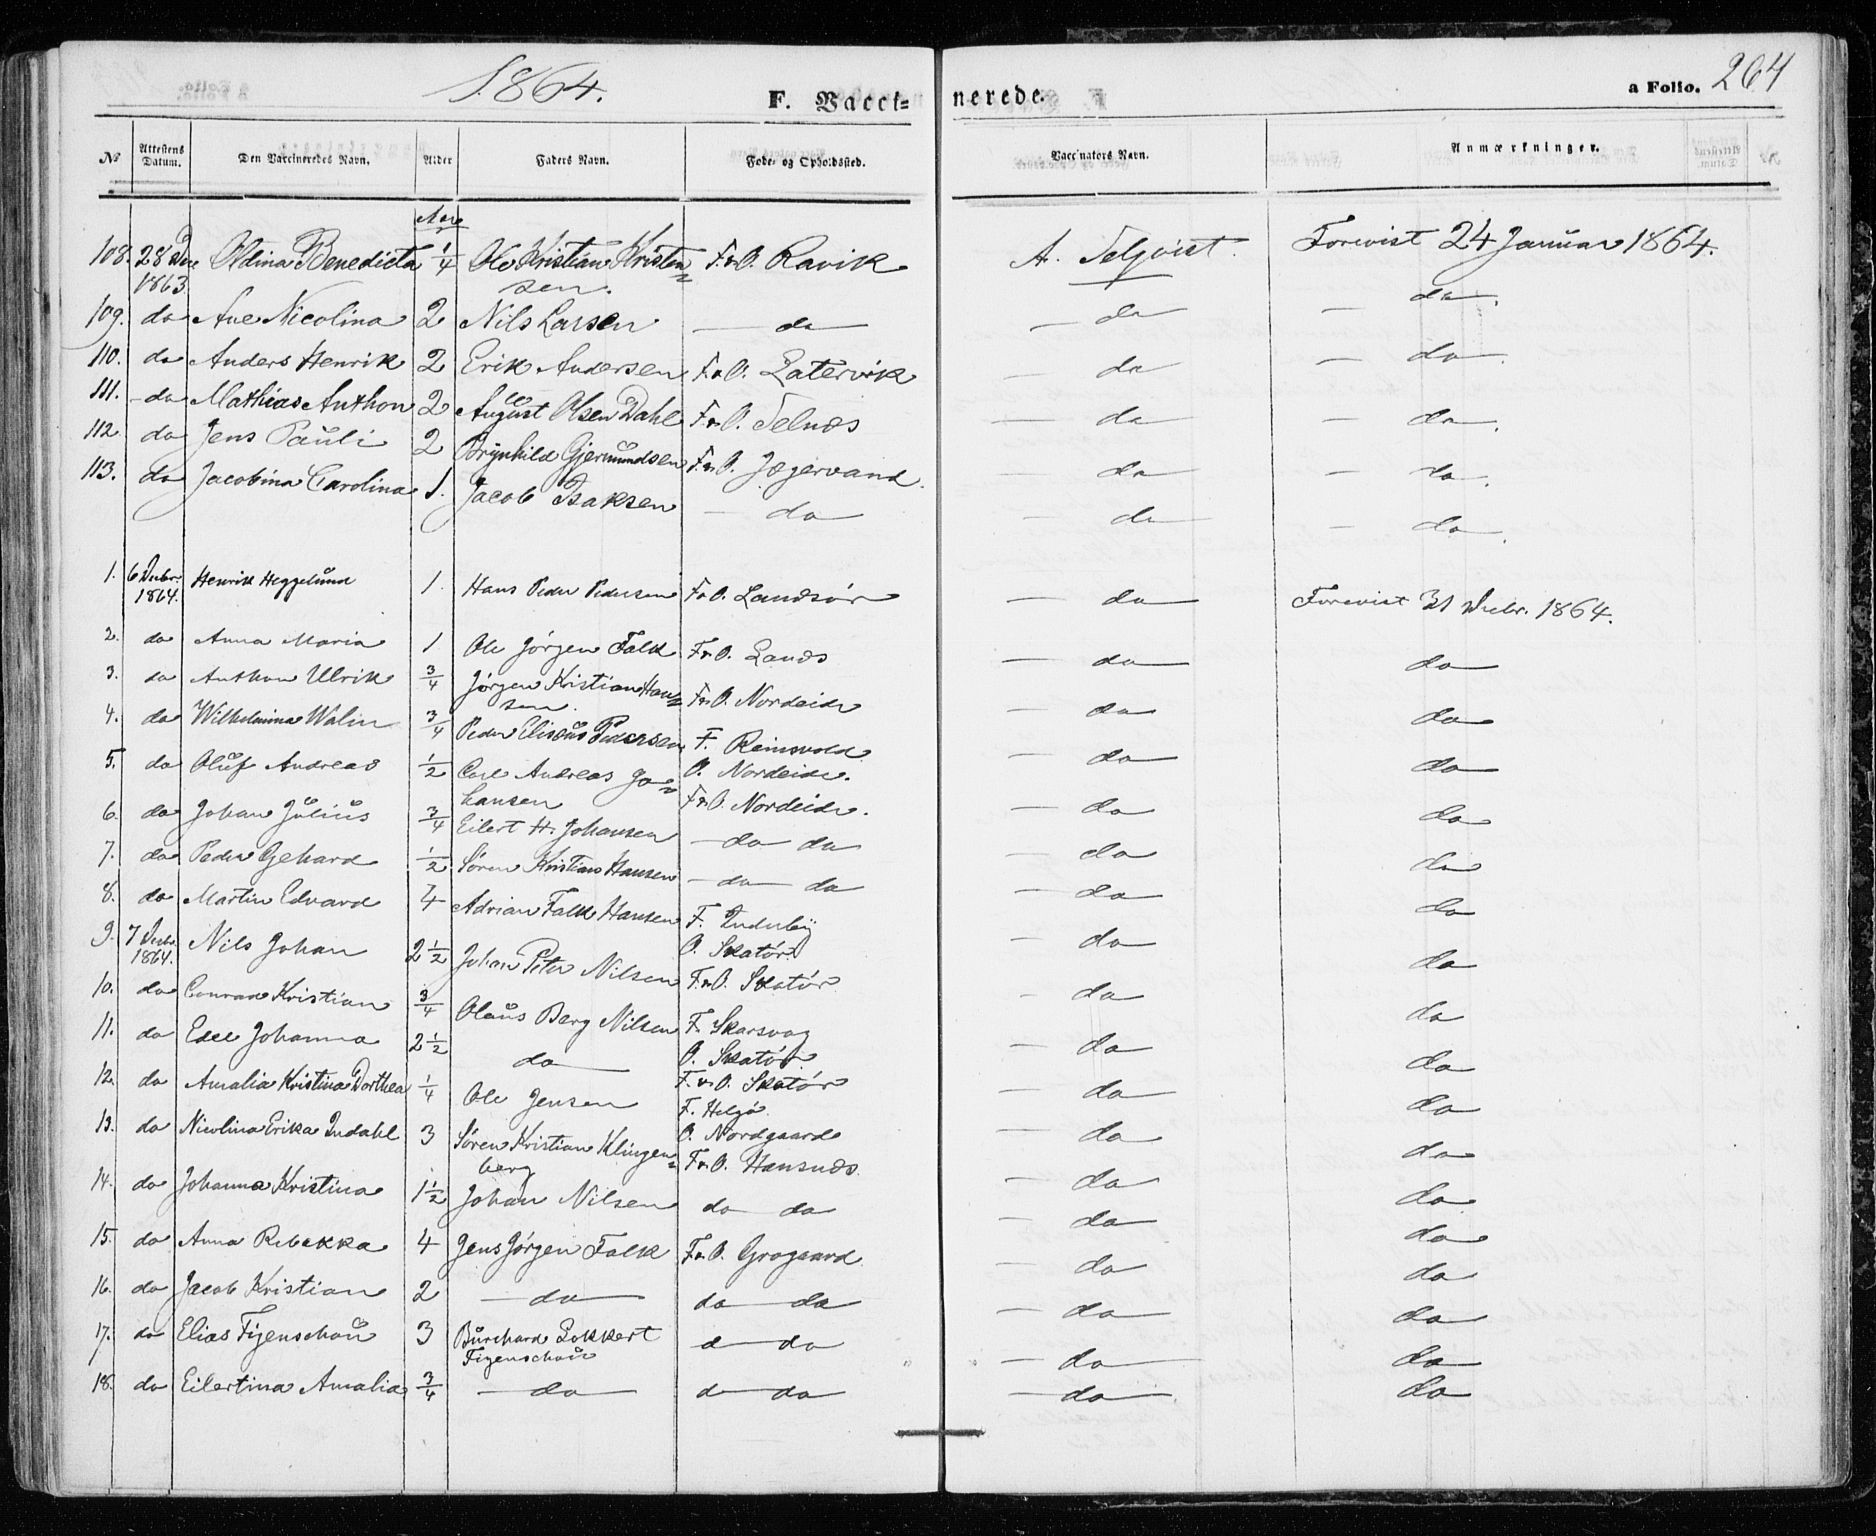 1864.
F. Vacci-nerede.
a Folio. 264
No Attestens Datum. Den Vaccineredes Navn. Alder Faders Navn. Føde- og Opholdssted. Vaccinators Navn. Anmærkninger.
Aar
108. 28 1863. Oldina Benedicta 1/4 Ole Kristian Kristen= sen. F. & O. Ravik A. Selqvist. Forevist 24 Januar 1864.
109. do Ane Nicolina 2 Nils Larsen — do — do — do.
110. do Anders Henrik 2 Erik Andersen F. & O. Latervik — do — do.
111. do Mathias Anthon 2 August Olsen Dahl F. & O. Selnæs — do — do.
112 do Jens Pauli 2 Brynhild Gjermundsen F. & O. Jægervand. — do — do.
113. do Jacobina Carolina 1. Jacob Isaksen — do — do — do.
1. 6 Decbr. 1864. Henrik Heggelund 1. Hans Peder Pedersen F. & O. Landsør — do Forevist 31 Decbr. 1864.
2. do Anna Maria 1 Ole Jörgen Falk F. & O. Lands — do do
3. do Anthon Ulrik 3/4 Jörgen Kristian Han= sen. F. & O. Nordeide — do do
4. do Wilhelmina Walin 3/4 Peder Eliseus Pedersen F. Reinsvold O. Nordeide. — do do
5. do Oluf Andreas 1/2 Carl Andreas Jo= hansen F. & O. Nordeide. — do do
6. do Johan Julius 3/4 Eilert H. Johansen — do do — do do
7. do Peder Gehard 1/2 Sören Kristian Hansen — do — do — do do
8. do Martin Edvard 4 Adrian Falk Hansen F. Inderby O. Skatör — do do
9. 7 Decbr. 1864. Nils Johan 2 1/2 Johan Peter Nilsen F. & O. Skatör — do do
10. do Conrad Kristian 3/4 Olaus Berg Nilsen F. Skarsvog O. Skatör — do do
11. do Edel Johanna 2 1/2 do F. & O. Skatör — do do
12. do Amalia Kristina Dorthea 1/4 Ole Jensen F. Helgö O. Nordgaard — do do
13. do Nicolina Erika Indahl 3 Sören Kristian Klingen= berg F. & O. Hansnæs — do do
14. do Johanna Kristina 1 1/2 Johan Nilsen do do — do do
15. do Anna Rebekka 4 Jens Jörgen Falk F. & O. Grogaard — do do
16. do Jacob Kristian 2 — do — do — do — do do
17. do Elias Figenschou 3 Burchard Lokkert Figenschou d — do — do do
18. do Eilertina Amalia 3/4 — do — d — do — do do